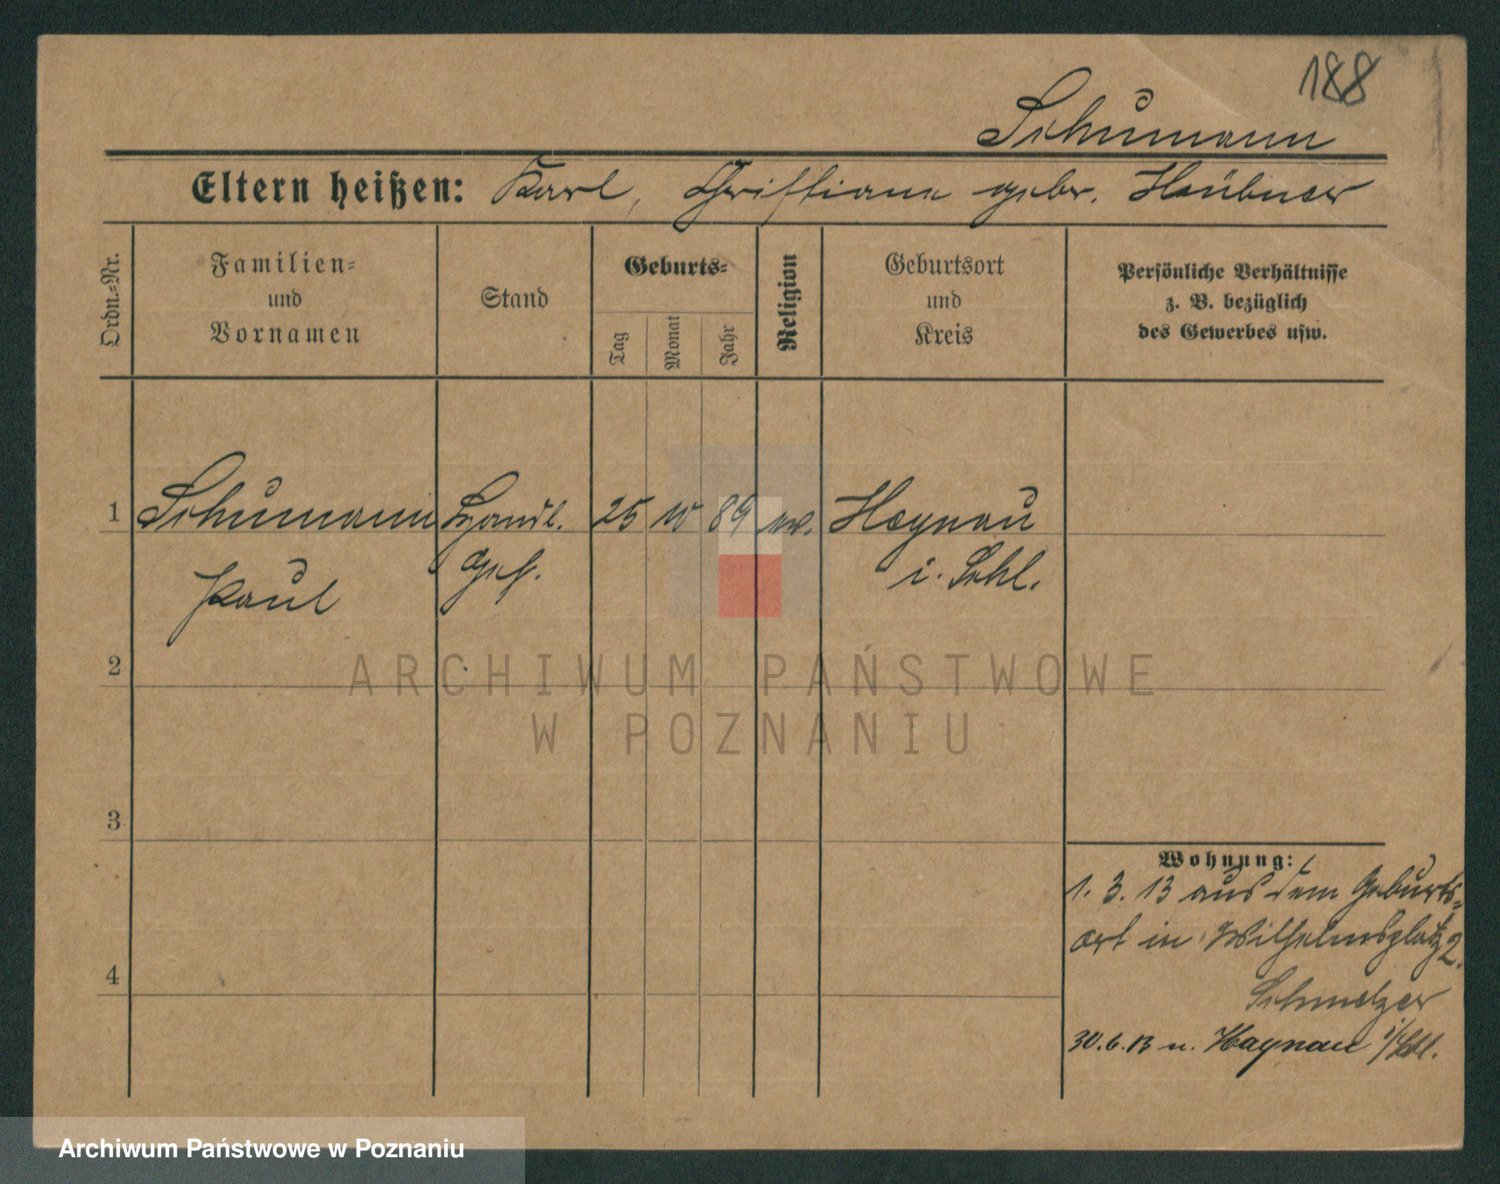 188
Schumann
Eltern heißen: Karl, Christiane gebr. Heubner
Ordn.-Nr.
Familien-
und
Vornamen
Stand
Geburts-
Tag
Monat
Jahr
Religion
Geburtsort
und
Kreis
Persönliche Verhältnisse
z. B. bezüglich
des Gewerbes usw.
1 Schumann Handl. 25 10 89 ev. Haynau
Paul Geh. i. Schl.
2
ARCHIWUM PAŃSTWOWE
W POZNANIU
3
4
Wohnung:
1. 3. 13 aus dem Geburts-
ort in Wilhelmsplatz 2.
Schmelzer
30.6.13 n. Haynau i/Schl.
Archiwum Państwowe w Poznaniu